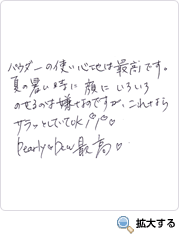 パウダーの使い心地は最高です。
真の暑い時に顔にいろいろ
のせるのは嫌なのですが、これなら
サラッとしていてOK!!♡
pearly dew 最高♡
拡大する